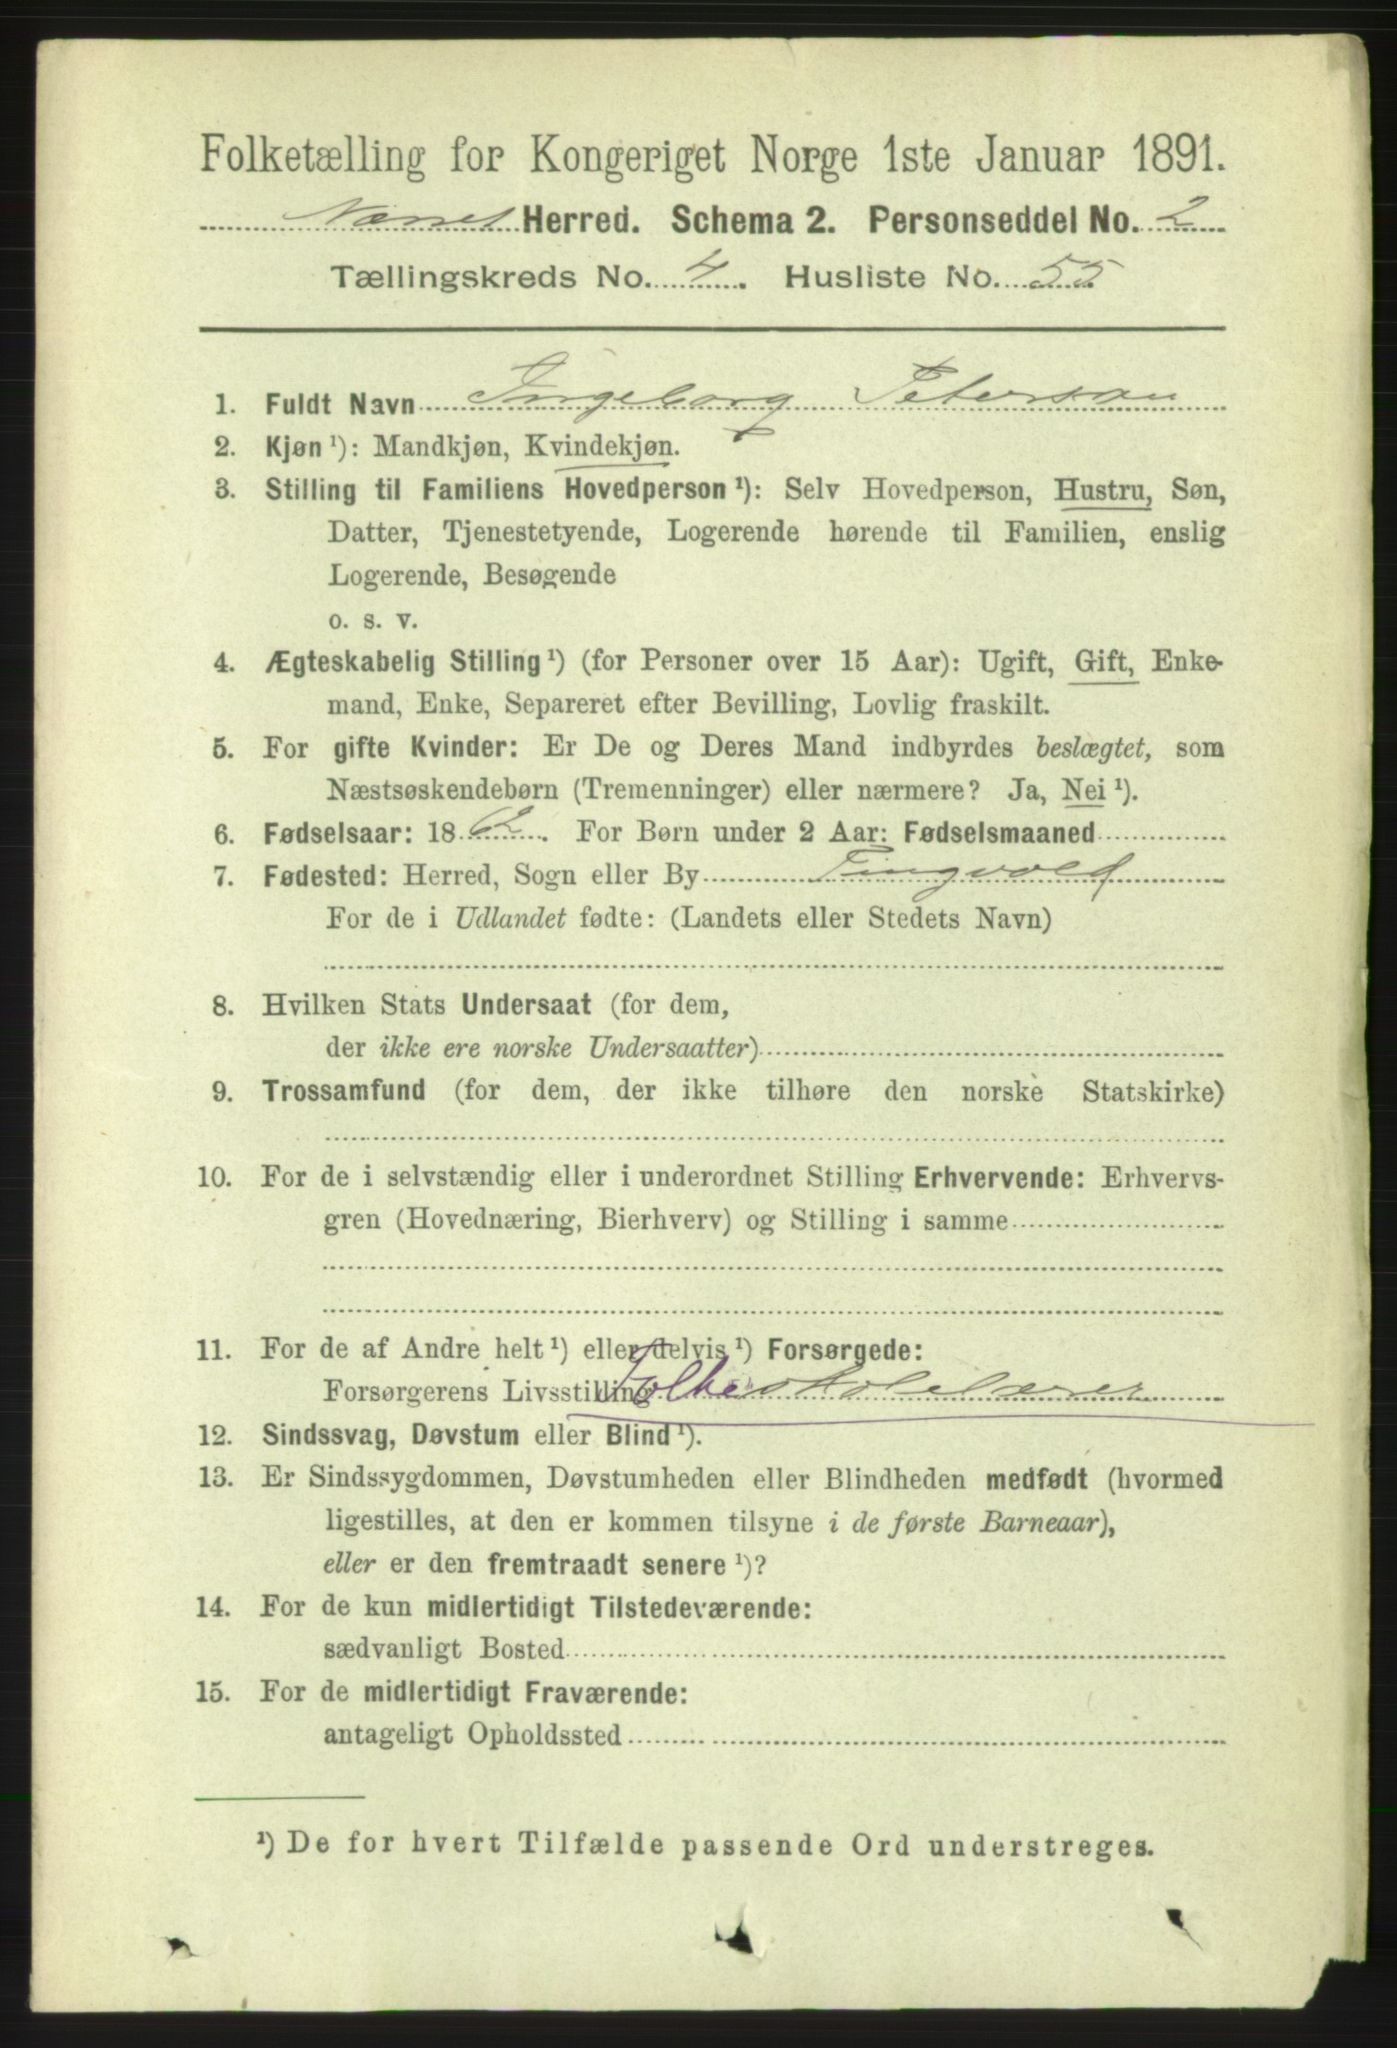 Folketælling for Kongeriget Norge 1ste Januar 1891.
Nesset Herred. Schema 2. Personseddel No. 2
Tællingskreds No. 4. Husliste No. 55
1. Fuldt Navn Ingeborg Peterson
2. Kjøn ¹): Mandkjøn, Kvindekjøn.
3. Stilling til Familiens Hovedperson ¹): Selv Hovedperson, Hustru, Søn,
Datter, Tjenestetyende, Logerende hørende til Familien, enslig
Logerende, Besøgende
o. s. v.
4. Ægteskabelig Stilling ¹) (for Personer over 15 Aar): Ugift, Gift, Enke-
mand, Enke, Separeret efter Bevilling, Lovlig fraskilt.
5. For gifte Kvinder: Er De og Deres Mand indbyrdes beslægtet, som
Næstsøskendebørn (Tremenninger) eller nærmere? Ja, Nei ¹).
6. Fødselsaar: 1862. For Børn under 2 Aar: Fødselsmaaned
7. Fødested: Herred, Sogn eller By Tingvold
For de i Udlandet fødte: (Landets eller Stedets Navn)
8. Hvilken Stats Undersaat (for dem,
der ikke ere norske Undersaatter)
9. Trossamfund (for dem, der ikke tilhøre den norske Statskirke)
10. For de i selvstændig eller i underordnet Stilling Erhvervende: Erhvervs-
gren (Hovednæring, Bierhverv) og Stilling i samme
11. For de af Andre helt ¹) eller delvis ¹) Forsørgede:
Forsørgerens Livsstilling Folkeskolelærer
12. Sindssvag, Døvstum eller Blind ¹).
13. Er Sindssygdommen, Døvstumheden eller Blindheden medfødt (hvormed
ligestilles, at den er kommen tilsyne i de første Barneaar),
eller er den fremtraadt senere ¹)?
14. For de kun midlertidigt Tilstedeværende:
sædvanligt Bosted
15. For de midlertidigt Fraværende:
antageligt Opholdssted
¹) De for hvert Tilfælde passende Ord understreges.